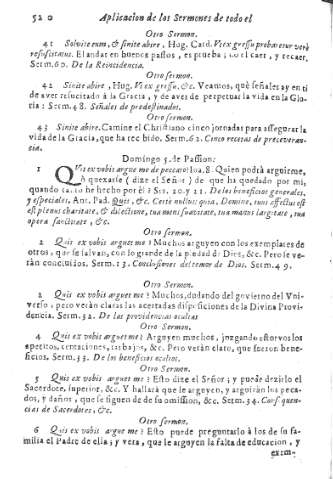 520 Aplicacion de los Sermones de todo el
Otro Sermon.
41 Solvite eum, & sinite abire, Hug. Card. Vt ex gressu probaretur verè
resuscitatus. El andar en buenos passos, es prueba; no el caer, y recaer,
Serm. 60. De la Reincidencia.
Otro sermon.
42 Sinite abire, Hug. Vt ex gressu, &c. Veamos, què señales ay en ti
de aver resucitado à la Gracia, y de aver de perpetuar la vida en la Glo-
ria: Serm. 48. Señales de predestinados.
Otro sermon.
43 Sinite abire. Camine el Christiano cinco jornadas para assegurar la
vida de la Gracia, que ha recebido. Serm. 62. Cinco recetas de preceveran-
cia.
Domingo 5. de Passion:
1 Quis ex vobis argue me de peccato: Ioa. 8. Quien podrà arguirme,
ò quexarse (dize el Señor) de que ha quedado por mi,
quando tanto he hecho por èl? Ser. 20. y 21. De los beneficios generales,
y especiales, Ant. Pad. Quis, &c. Certè nullus quia, Domine, tuus effectus est
est plenus charitate, & dilectione, tua mens suavitate, tua manus largitate, tua
opera sanctitate, &c.
Otro sermon.
2 Quis ex vobis arguet me? Muchos arguyen con los exemplares de
otros, que se salvan, con lo grande de la piedad di Dios, &c. Pero se ve-
ràn concluidos. Serm. 13. Conclusiones del temor de Dios. Serm. 49.
Otro sermon.
3 Quis ex vobis arguet me? Muchos, dudando del govierno del Vni-
verso; pero veràn claras las acertadas disposiciones de la Divina Provi-
dencia. Serm. 32. De las providencias ocultas
Otro Sermon.
4 Quis ex vobis arguet me? Arguyen muchos, juzgando estorvos los
apetitos, tentaciones, trabajos, &c. Pero veràn claro, que fueron bene-
ficios, Serm. 33. De los beneficios ocultos.
Otro Sermon.
5 Quis ex vobis arguet me? Esto dize el Señor; y puede dezirlo el
Sacerdote, superior, &c. Y hallarà que le arguyen, y arguiràn los peca-
dos, y daños, que se siguen de de su omission, &c. Serm. 34. Consequen-
cias de Sacerdotes, &c.
Otro sermon.
6 Quis ex vobis arguet me? Esto puede preguntarlo à los de su fa-
milia el Padre de ella; y vera, que le arguyen la falta de educacion, y
exem-